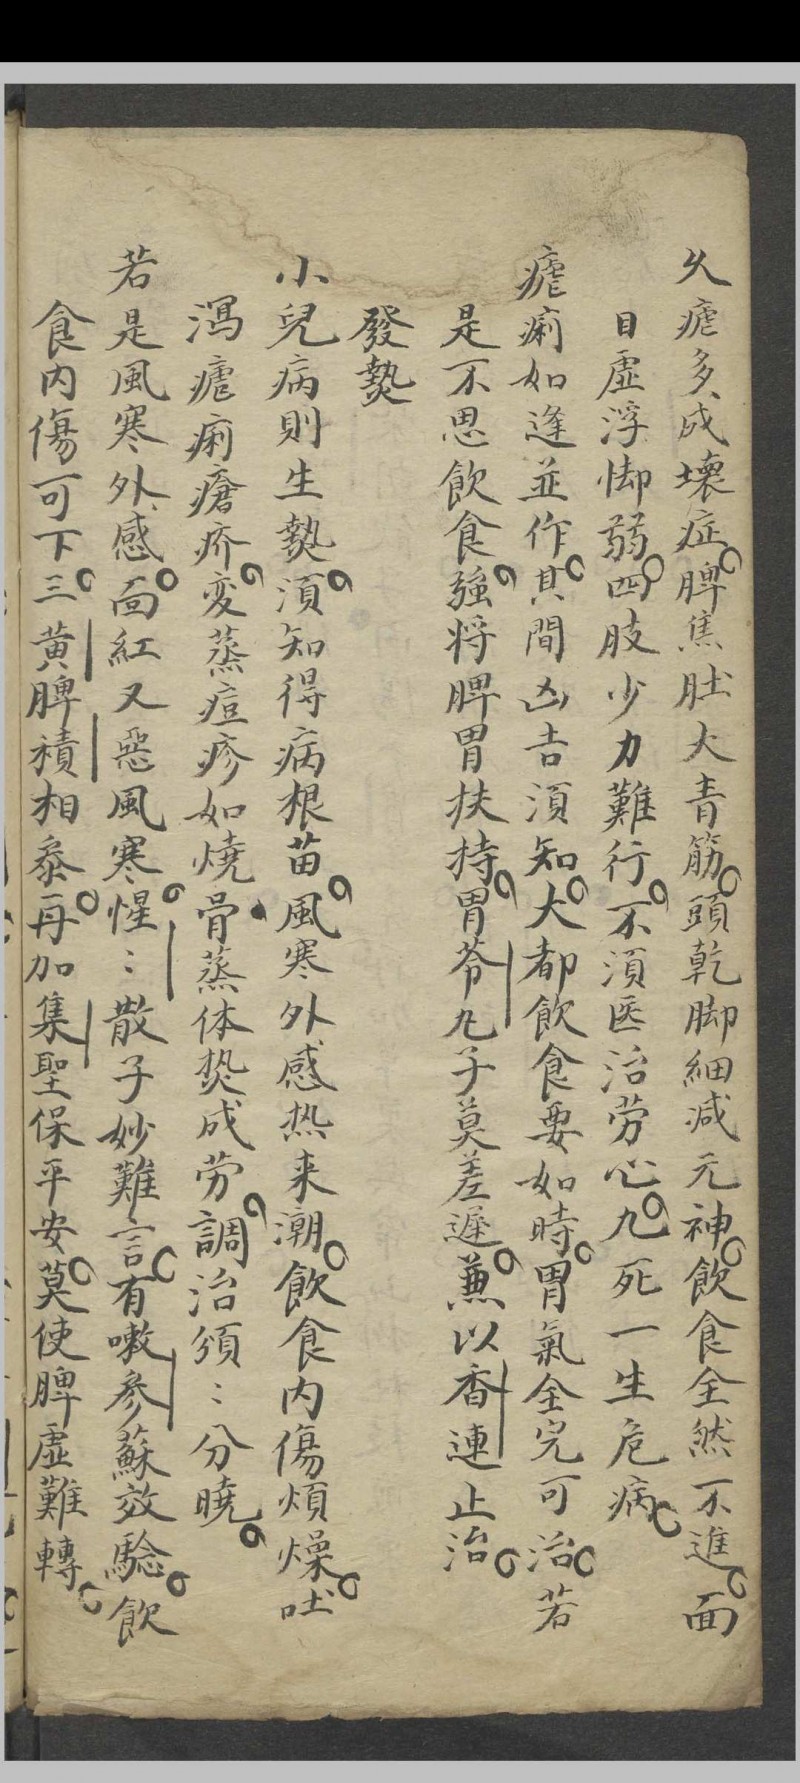 久瘧多成壞症脾焦肚大青筋頭乾脚細减元神飲食全然不進面
目虛浮㑢弱四肢少力難行不湏医治劳心九死一生危病
瘧痢如逢並作其間凶吉湏知大都飲食要如時胃氣全完可治若
是不思飲食強将脾胃扶持胃苓丸子莫差遲兼以香連止治
發𤍠
小兒病則生𤍠湏知得病根苗風寒外感热来潮飲食内傷煩燥吐
瀉瘧痢瘡疥変蒸痘疹如燒骨蒸体热成劳調治頒〻分曉
若是風寒外感面紅又惡風寒惺〻散子妙難言有嗽參蘇效驗飲
食内傷可下三黄脾積相叅再加集聖保平安莫使脾虛難轉